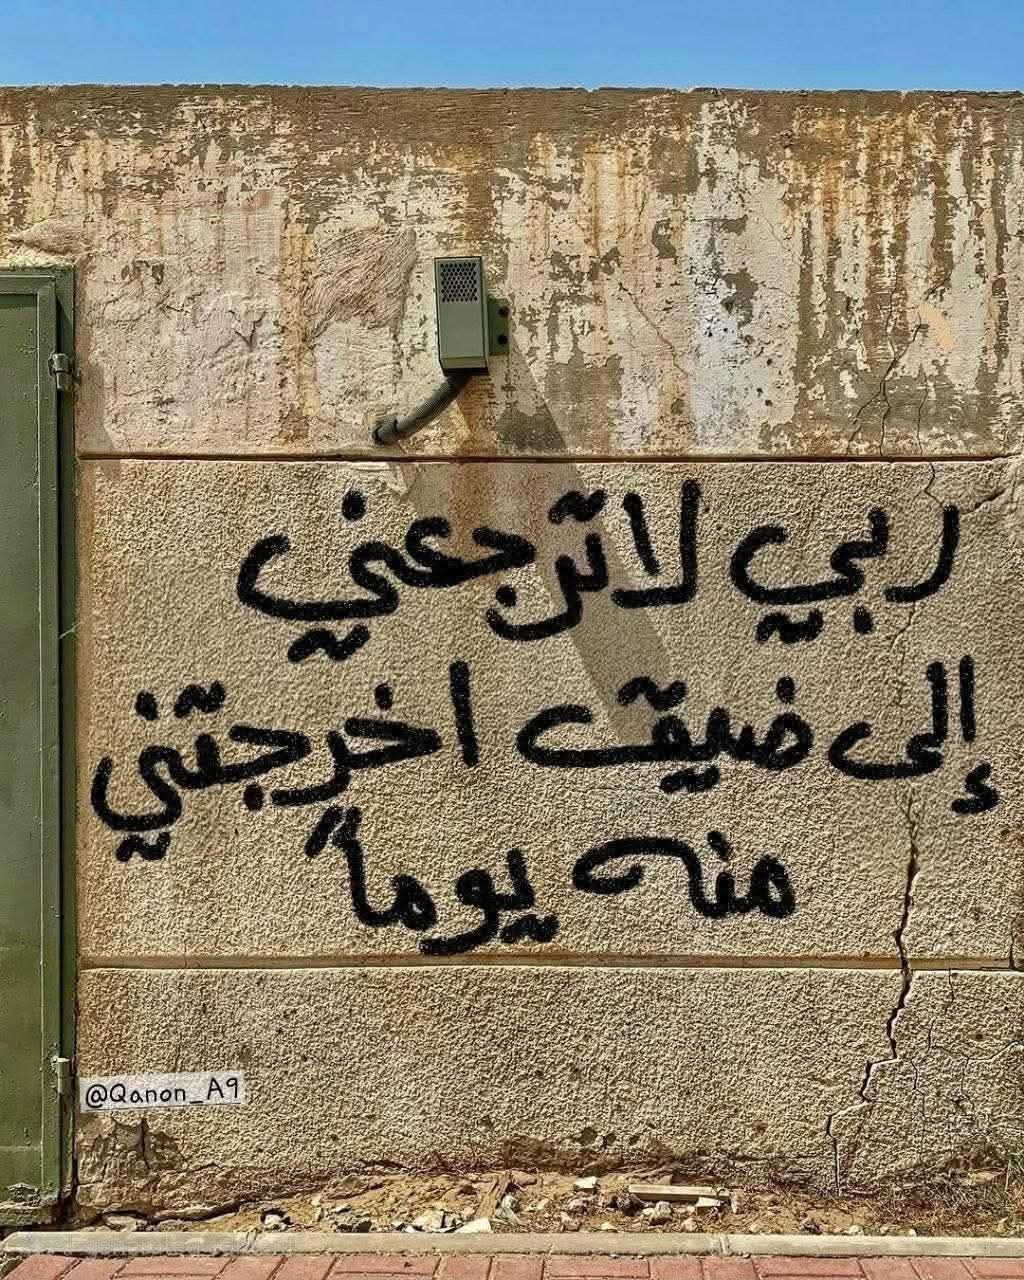 ربي لا ترجعني
إلى ضيق اخرجتني
منه يوماً
@Qanon_A9